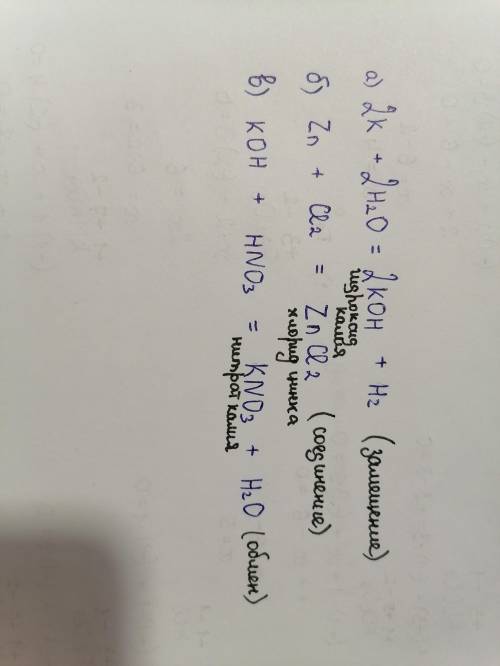 а) 2K + 2H₂O = 2KOH + H₂ (замещение)
гидроксид
калия
б) Zn + Cl₂ = ZnCl₂ (соединение)
хлорид цинка
в) KOH + HNO₃ = KNO₃ + H₂O (обмен)
нитрат калия